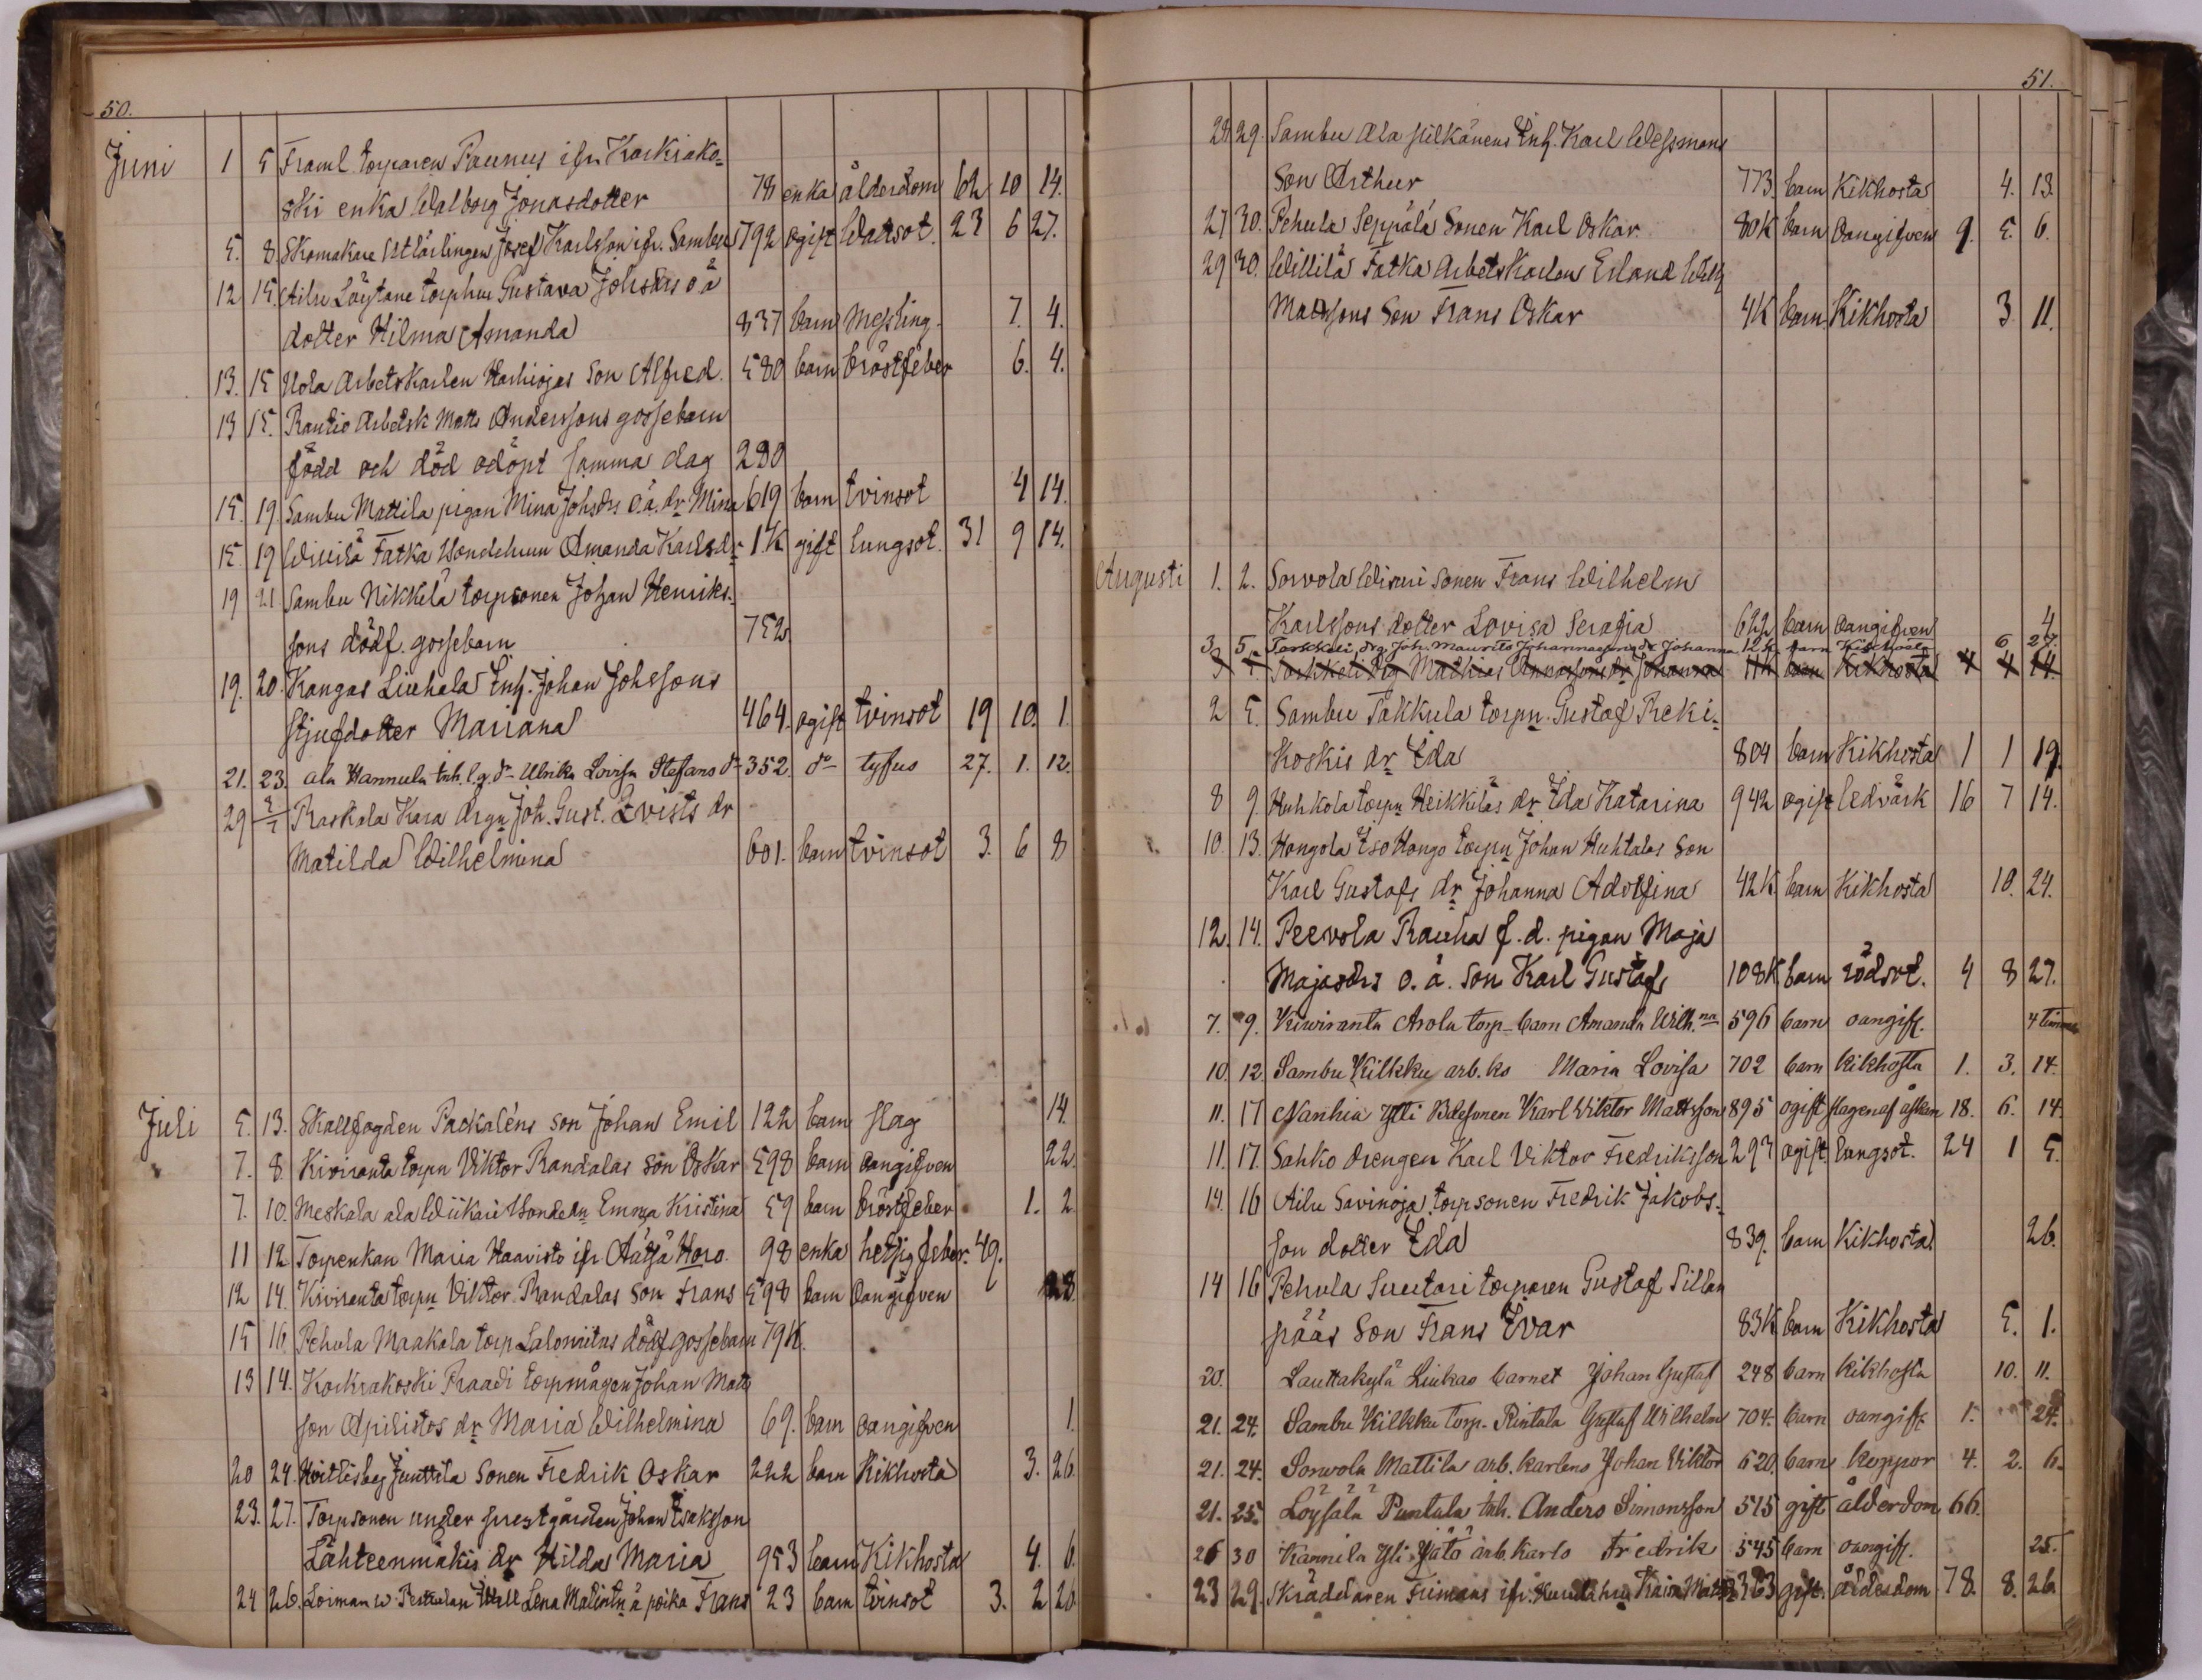 50.
Juni 1 5 Framl. torparen Paunus ifr. Karkiako-
ski enka Walborg Jonasdotter 78 enka ålderdom 62 10 14.
5. 8. Skomakare lärlingen Josef Karlsson ifr. Sambu 792 ogift Wattsot. 23 6 27.
12 15. Ailu Löytane torphus Gustava Johsdrs o ä
dotter Hilma Amanda 837 barn Messling. 7. 4.
13. 15 Uola Arbetskarlen Harhiojas Son Alfred. 580 barn bröstfeber 6. 4.
13 15. Rautio Arbetsk Matts Anderssons gossebarn
född och död odöpt samma dag 280
15. 19. Sambu Mattila pigan Mina Johsdrs o.ä. dr Mina 619 barn tvinsot 4 14.
15. 19 Willilä Fatka Bondehun Amanda Karlsdr 1.K gift lungsot. 31 9 14.
19 21 Sambu Nikkilä torpsonen Johan Henriks-
sons dödf. gossebarn 752
19. 20. Kangas Liuhala Inh. Johan Johssons
stjufdotter Mariana 464. ogift tvinsot 19 10. 1.
21. 23. ala Hannula inh. l.g. dr Ulrika Lovisa Stefans dr 352. do tyfus 27. 1. 12.
29 2/7 Raskala Kara drgn Joh. Gust. Qvists dr
Matilda Wilhelmina 601. barn tvinsot 3. 6 8
Juli 5. 13. Skallfogden Packaléns son Johan Emil 122 barn slag 14.
7. 8. Kiviranta torpn Viktor Randalas son Oskar 598 barn oangifven 22.
7. 10. Meskala ala Wiikari Bondedn Emma Kristina 59 barn bröstfeber 1. 2
11 12 Torpenkan Maria Haavisto ifr Äätsä Horo. 98 enka hetsig feber. 49.
12 14. Kiviranta torpn Viktor Randalas son Frans 598 barn oangifven 28.
15 16. Pehula Maakola torp Salomitas dödf gossebarn 79K.
13 14. Karkiakoski Praadi torpmågen Johan Matts
son Apilistos dr Maria Wilhelmina 69. barn oangifven 1.
20 24. Hvittisbej Junttila Sonen Fredrik Oskar 222 barn Kikhosta 3. 26.
23. 27. Torpsonen under prestgården Johan Isaksson
Lähteenmäkis dr Hilda Maria 953 barn Kikhosta 4. 6.
24 26. Loiman Lena poika Frans 23 barn tvinsot 3. 2 26.
51.
28 29. Sambu Ala Pilkänens Inh. Karl Wessmans
Son Arthur 773. barn Kikhosta 4. 13.
27 30. Pehula Seppälä Sonen Karl Oskar 80K barn Oangifven 9. 5. 6.
29 30. Willilä Fatka Arbetskarlen Erland Wilh
Matssons Son Frans Oskar 4K barn Kikhosta 3 11.
Augusti 1. 2. Sorvola Wisari Sonen Frans Wilhelm
Karlssons dotter Lovisa Serafia 622 barn oangifven 4
3. 5. Torkkeli drg. Joh. Maurits Johannessons dr Johanna 12K barn Kikhosta 6 27.
2 5. Sambu Takkula torpn. Gustaf Reki-
koskis dr Eda 804 barn Kikhosta 1 1 19.
8 9. Huhkola torpn Heikkiläs dr Ida Katarina 942 ogift ledvärk 16 7 14.
10. 13. Hongola Iso Hongo torpn Johan Huhtalas Son
Karl Gustafs dr Johanna Adolfina 42K barn Kikhosta 10. 24.
12. 14. Peevola Rauha f.d. pigan Maja
Majasdrs o.ä. Son Karl Gustaf 108K barn rödsot. 4 8 27.
7. 9. Kiviranta Arola torp. barn Amanda Wilh.na 596 barn oangift. 4 timmar
10. 12. Sambu Kilkku arb. ks Maria Lovisa 702 barn kikhosta 1. 3. 14.
11. 17 Nanhia Ylli Bdesonen Karl Viktor Mattsson 895 ogift slagen af åskan 18. 6. 14.
11. 17. Sahko drengen Karl Viktor Fredriksson 293 ogift. lungsot. 24 1 5.
14. 16 Ailu Savinoja torpsonen Fredrik Jakobs-
son dotter Eda 839. barn Kikhosta 26.
14 16 Pehula Suutari torparen Gustaf Sillan
pääs Son Frans Ivar 83K barn Kikhosta 5. 1.
20. Lauttakylä Liukas barnet Johan Gustaf 248 barn kikhosta 10. 11.
21. 24. Sambu Kilkku torp. Rintala Gustaf Wilhelm 704. barn oangift. 1. 24.
21. 24. Sorwola Mattila arb. karlens Johan Viktor 620. barn koppor 4. 2. 6.
21. 25. Löysälä Puntala inh. Anders Simonsson 515 gift ålderdom 66.
26 30 Kannila Yli Jätö arb. karls Fredrik 545 barn oangift. 25.
23 29. Skräddaren Frimans ifr. hu Kaisa 363 gift. ålderdom 78. 8. 26.